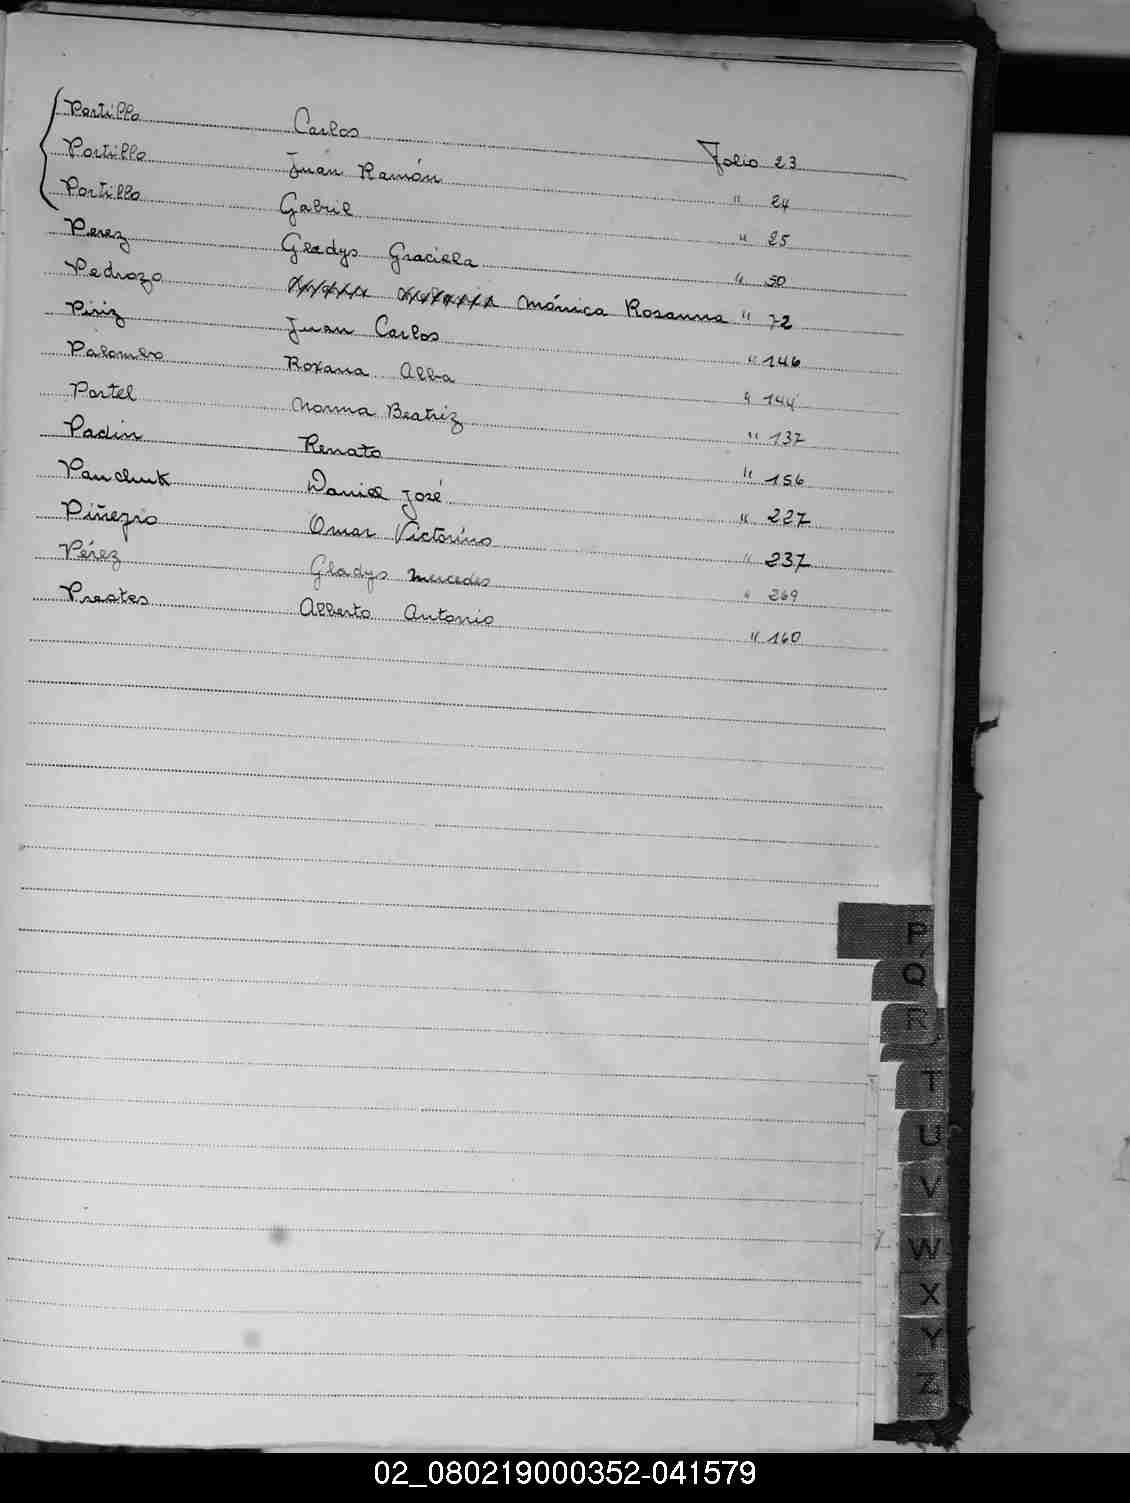 Portillo Carlos Folio 23
Portillo Juan Ramón " 24
Portillo Gabriel " 25
Perez Gladys Graciela " 50
Pedrozo Mónica Rosanna " 72
Piriz Juan Carlos " 146
Palombo Roxana Alba " 144
Portel Norma Beatriz " 137
Padin Renato " 156
Panchuk Daniel José " 227
Piñeyro Omar Victorino " 237
Pérez Gladys Mercedes " 269
Preates Alberto Antonio " 160
P
Q
R
T
U
V
W
X
Y
Z
02_080219000352-041579